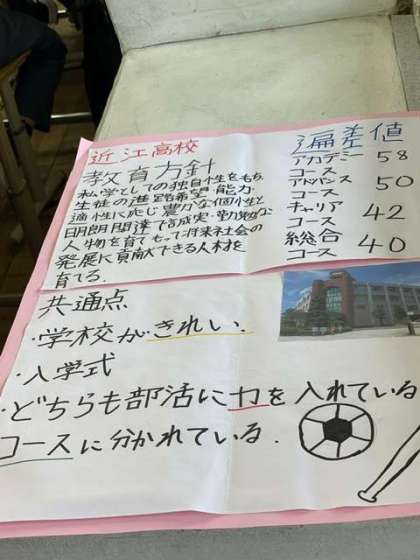 近江高校
教育方針
私学としての独自性をもち
生徒の進路希望・能力・
適性に応じ豊かな個性と
明朗闊達で誠実・勤勉な
人物を育てもって将来社会の
発展に貢献できる人材を
育てる.
偏差値
アカデミー 58
コース
アドバンス 50
コース
キャリア 42
コース
総合 40
コース
共通点
・学校がきれい.
・入学式
・どちらも部活に力を入れている
コースに分かれている.